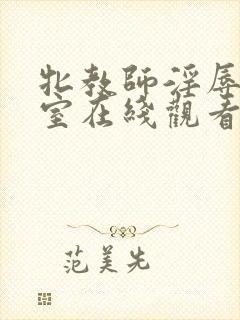 牝教師淫辱教
室在綫觀看
范美先